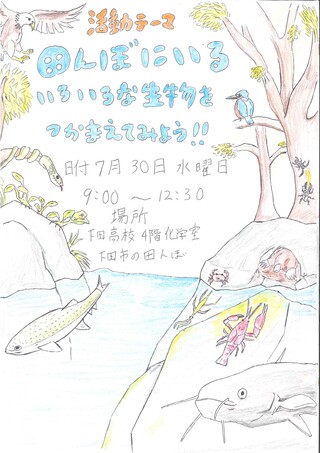 活動テーマ
田んぼにいる
いろいろな生物を
つかまえてみよう!!
日付7月30日水曜日
9:00 ～12:30
場所
下田高校 4階化学室
下田市の田んぼ